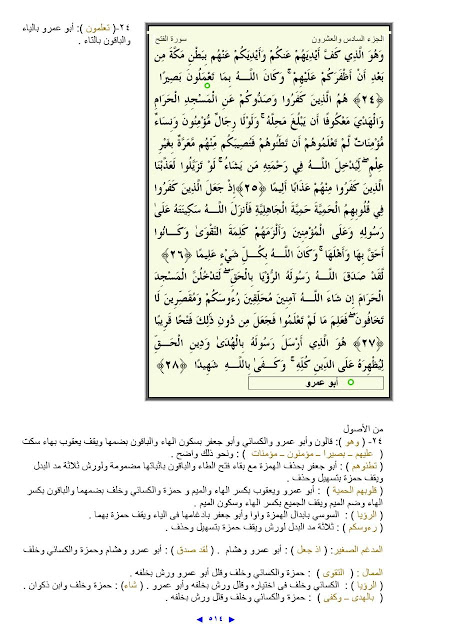 ٢٤-( تعلمون ): أبو عمرو بالياء
والباقون بالتاء .
الجزء السادس والعشرون
سورة الفتح
وَهُوَ الَّذِي كَفَّ أَيْدِيَهُمْ عَنكُمْ وَأَيْدِيَكُمْ عَنْهُم بِبَطْنِ مَكَّةَ مِن
بَعْدِ أَنْ أَظْفَرَكُمْ عَلَيْهِمْ ۚ وَكَانَ اللَّهُ بِمَا تَعْمَلُونَ بَصِيرًا
﴿٢٤﴾ هُمُ الَّذِينَ كَفَرُوا وَصَدُّوكُمْ عَنِ الْمَسْجِدِ الْحَرَامِ
وَالْهَدْيَ مَعْكُوفًا أَن يَبْلُغَ مَحِلَّهُ ۚ وَلَوْلَا رِجَالٌ مُّؤْمِنُونَ وَنِسَاءٌ
مُّؤْمِنَاتٌ لَّمْ تَعْلَمُوهُمْ أَن تَطَئُوهُمْ فَتُصِيبَكُم مِّنْهُم مَّعَرَّةٌ بِغَيْرِ
عِلْمٍ ۖ لِّيُدْخِلَ اللَّهُ فِي رَحْمَتِهِ مَن يَشَاءُ ۚ لَوْ تَزَيَّلُوا لَعَذَّبْنَا
الَّذِينَ كَفَرُوا مِنْهُمْ عَذَابًا أَلِيمًا ﴿٢٥﴾ إِذْ جَعَلَ الَّذِينَ كَفَرُوا
فِي قُلُوبِهِمُ الْحَمِيَّةَ حَمِيَّةَ الْجَاهِلِيَّةِ فَأَنزَلَ اللَّهُ سَكِينَتَهُ عَلَىٰ
رَسُولِهِ وَعَلَى الْمُؤْمِنِينَ وَأَلْزَمَهُمْ كَلِمَةَ التَّقْوَىٰ وَكَانُوا
أَحَقَّ بِهَا وَأَهْلَهَا ۚ وَكَانَ اللَّهُ بِكُلِّ شَيْءٍ عَلِيمًا ﴿٢٦﴾
لَّقَدْ صَدَقَ اللَّهُ رَسُولَهُ الرُّؤْيَا بِالْحَقِّ ۖ لَتَدْخُلُنَّ الْمَسْجِدَ
الْحَرَامَ إِن شَاءَ اللَّهُ آمِنِينَ مُحَلِّقِينَ رُءُوسَكُمْ وَمُقَصِّرِينَ لَا
تَخَافُونَ ۖ فَعَلِمَ مَا لَمْ تَعْلَمُوا فَجَعَلَ مِن دُونِ ذَٰلِكَ فَتْحًا قَرِيبًا
﴿٢٧﴾ هُوَ الَّذِي أَرْسَلَ رَسُولَهُ بِالْهُدَىٰ وَدِينِ الْحَقِّ
لِيُظْهِرَهُ عَلَى الدِّينِ كُلِّهِ ۚ وَكَفَىٰ بِاللَّهِ شَهِيدًا ﴿٢٨﴾
أبو عمرو
من الأصول
٢٤- ( وهو ): قالون وأبو عمرو والكسائي وأبو جعفر بسكون الهاء والباقون بضمها ويقف يعقوب بهاء سكت
( عليهم ــ بصيرا ــ مؤمنون ــ مؤمنات ) : ونحو ذلك واضح .
( تطئوهم ) : أبو جعفر بحذف الهمزة مع بقاء فتح الطاء والباقون باثباتها مضمومة ولورش ثلاثة مد البدل
ويقف حمزة بتسهيل وحذف .
( قلوبهم الحمية ) : أبو عمرو ويعقوب بكسر الهاء والميم و حمزة والكسائي وخلف بضمهما والباقون بكسر
الهاء وضم الميم ويقف الجميع بكسر الهاء وسكون الميم .
( الرؤيا ) : السوسي بابدال الهمزة واوا وأبو جعفر بادغامها فى الياء ويقف حمزة بهما .
( رءوسكم ) : ثلاثة مد البدل لورش ويقف حمزة بتسهيل وحذف .
المدغم الصغير: ( اذ جعل ) : أبو عمرو وهشام . ( لقد صدق ) : أبو عمرو وهشام وحمزة والكسائي وخلف
الممال : ( التقوى ) : حمزة والكسائي وخلف وقلل أبو عمرو ورش بخلفه .
( الرؤيا ) : الكسائي وخلف فى اختياره وقلل ورش بخلفه وأبو عمرو . ( شاء) : حمزة وخلف وابن ذكوان .
( بالهدى ــ وكفى ) : حمزة والكسائي وخلف وقلل ورش بخلفه .
٥١٤